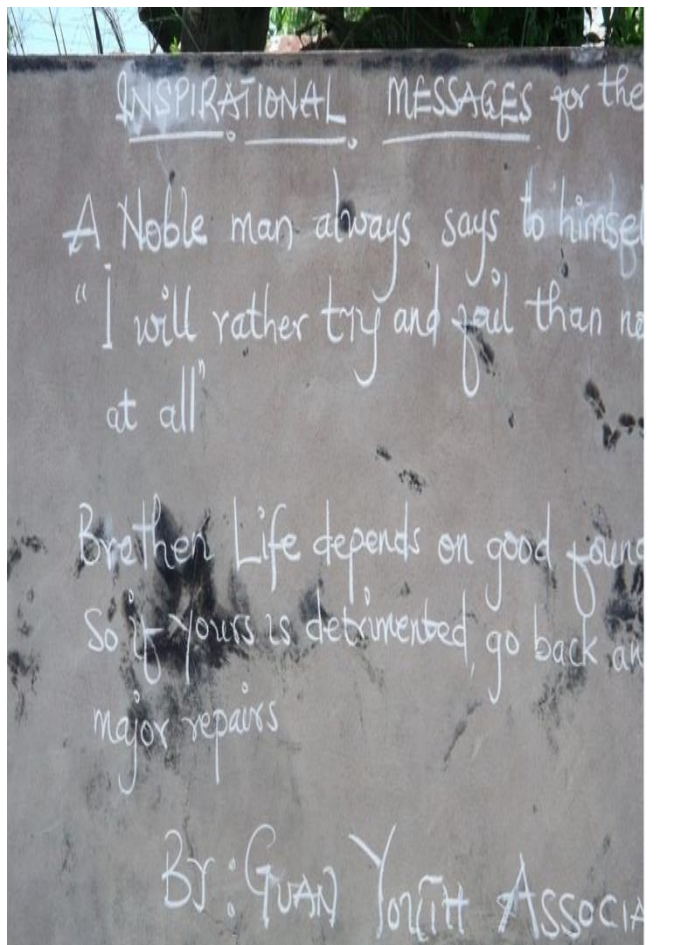 INSPIRATIONAL MESSAGES for the
A Noble man always says to himsel
"I will rather try and fail than no
at all"
Brethen Life depends on good found
So if yours is detrimented, go back an
major repairs
By: GUAN YOUTH ASSOCIA